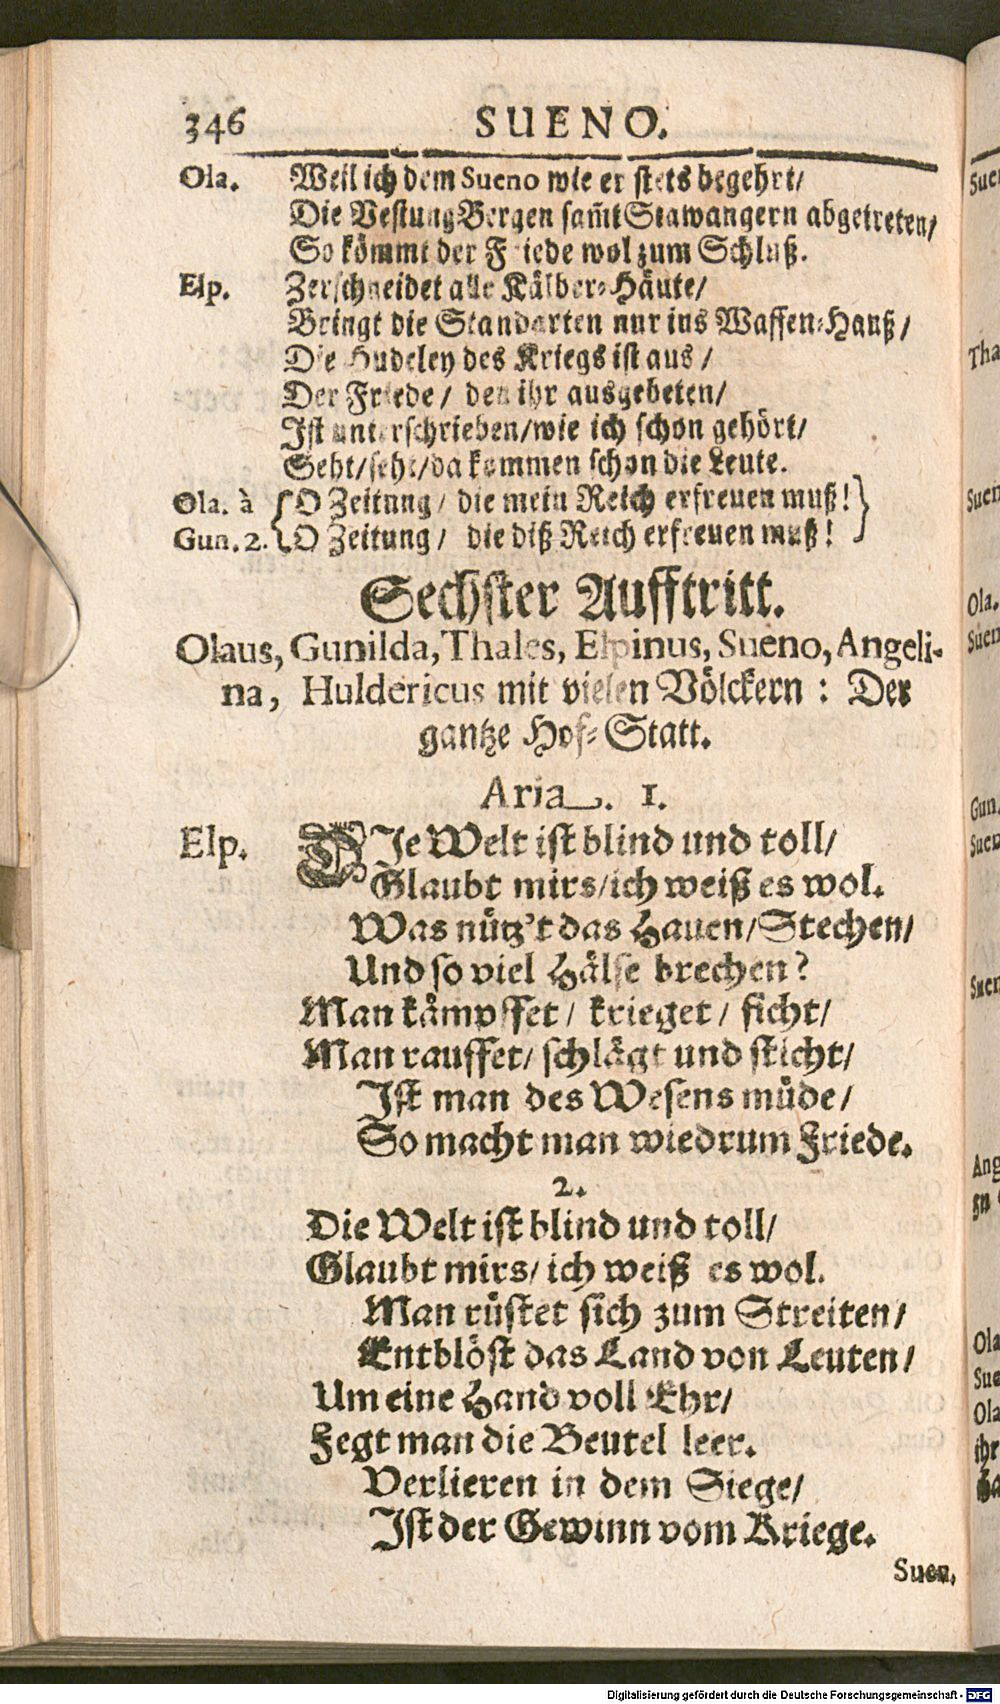 346 SUENO.
Ola. Weil ich dem Sueno wie er stets begehrt/
Die Vestung Bergen sam̃t Stawangern abgetreten/
So kömmt der Friede wol zum Schluß.
Elp. Zerschneidet alle Kälber-Häute/
Bringt die Standarten nur ins Waffen-Hauß/
Die Hudeley des Kriegs ist aus/
Der Friede/ den ihr ausgebeten/
Ist unterschrieben/wie ich schon gehört/
Seht/seht/da kommen schon die Leute.
Ola. à { O Zeitung/ die mein Reich erfreuen muß! }
Gun. 2. { O Zeitung/ die diß Reich erfreuen muß! }
Sechster Aufftritt.
Olaus, Gunilda, Thales, Elpinus, Sueno, Angeli-
na, Huldericus mit vielen Völckern: Der
gantze Hof-Statt.
Aria. 1.
Elp. DIe Welt ist blind und toll/
Glaubt mirs/ich weiß es wol.
Was nütz't das Hauen/Stechen/
Und so viel Hälse brechen?
Man kämpffet/ krieget/ ficht/
Man rauffet/ schlägt und sticht/
Ist man des Wesens müde/
So macht man wiedrum Friede.
2.
Die Welt ist blind und toll/
Glaubt mirs/ ich weiß es wol.
Man rüstet sich zum Streiten/
Entblöst das Land von Leuten/
Um eine Hand voll Ehr/
Fegt man die Beutel leer.
Verlieren in dem Siege/
Ist der Gewinn vom Kriege.
Suen.
Tha
Suen
Ola.
Suen
Gun.
Suen
Suen
Ang
Ola
Sue
Ola
ihr
Digitalisierung gefördert durch die Deutsche Forschungsgemeinschaft - DFG